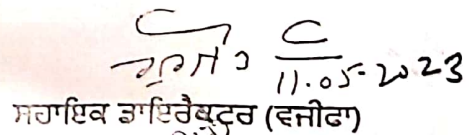 11.05-2023
ਸਹਾਇਕ ਡਾਇਰੈਕਟਰ (ਵਜੀਫਾ)